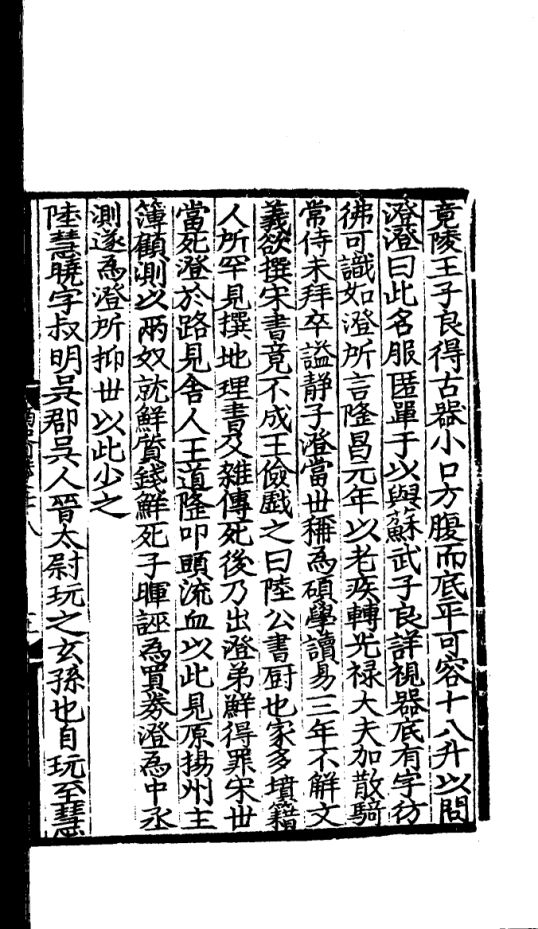 竟陵王子良得古器小口方腹而底平可容十八升以問
澄澄曰此名服匿單于以與蘇武子良詳視器底有字彷
彿可識如澄所言隆昌元年以老疾轉光祿大夫加散騎
常侍未拜卒謚靜子澄當世稱為碩學讀易三年不解文
義欲撰宋書竟不成王儉戲之曰陸公書厨也家多墳籍
人所罕見撰地理書及雜傳死後乃出澄弟鮮得罪宋世
當死澄於路見舍人王道隆叩頭流血以此見原揚州主
簿顧測以兩奴就鮮質錢鮮死子暉誣為買券澄為中丞
測遂為澄所抑世以此少之
陸慧曉字叔明吳郡吳人晉太尉玩之玄孫也自玩至慧